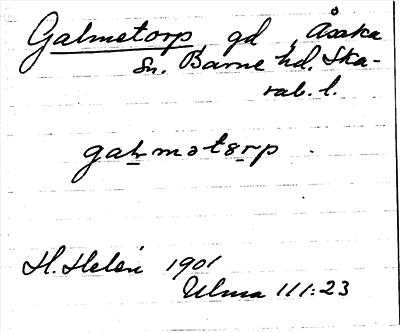 Galmetorp gd, Åsaka
Sn. Barne hd. Ska-
rab. l.
galmətərp
H. Helén 1901
Ulma 111:23